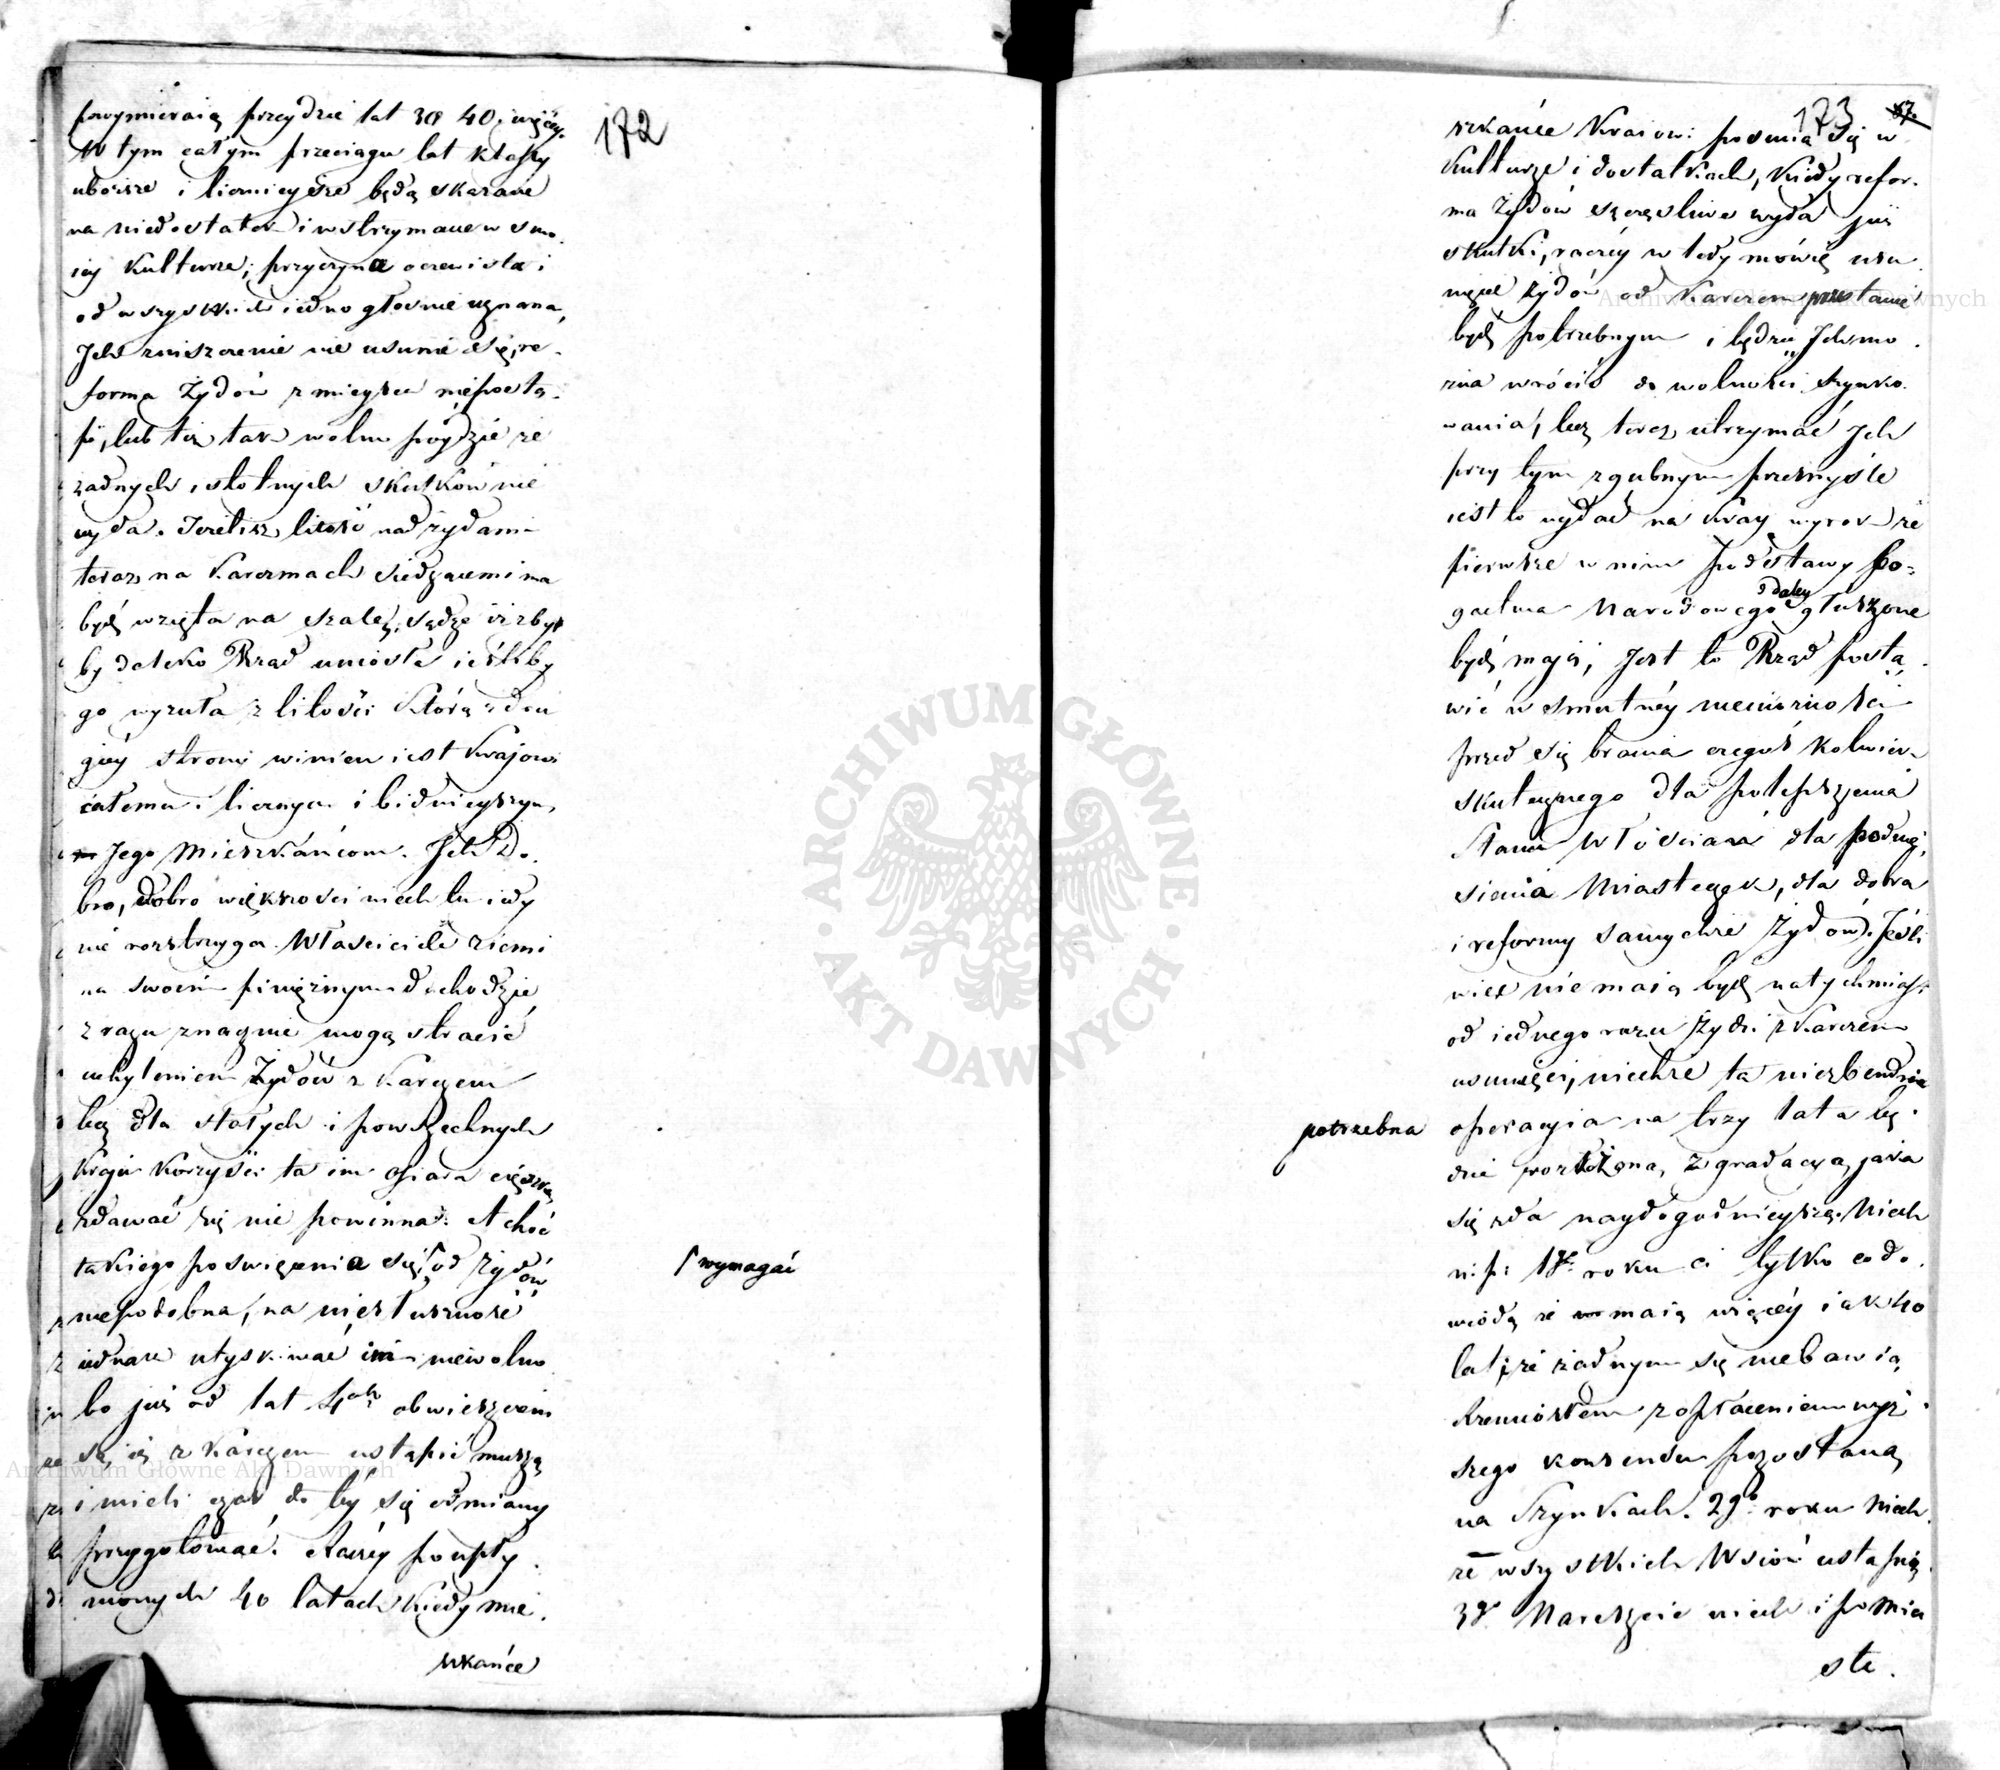 172
powymieraią przeydzie lat 30 40 i więcey.
W tym całym przeciągu lat klassy
uboższe i licznieysze będą skazane
na niedostatek i wstrzymane w swo-
iey kulturze; przyczyna oczewista i
od wszystkich iednogłośnie uznana,
Ich zniszczenie nie usunie się, re-
forma Żydów z mieysca niepostą-
pi, lub też tak wolno póydzie że
żadnych istotnych skutków nie
wyda. Jeżelisz litość nad żydami
teraz na karczmach siedzącemi ma
bydź wzięta na szalę, sądzę iż zby
by daleko Rząd uniosła ieśliby
go wyzuła z litości którą z dru
giéy strony winien iest krajowi
całemu i licznym i biednieyszym
Jego Mieszkańcom. Ich Do-
bro, dobro większości niech tu iedy
nie rozstrzyga. Właściciele ziemi
na swoim pieniężnym dochodzie,
zrazu znacznie mogą stracić
uchyleniem Żydów z karczem
lecz dla stałych i powszechnych
kraju korzyści ta im ofiara ciężką
zdawać się nie powinna. A choć
takiego poswięcenia się od żydów
wymagać
niepodobna, na niesłuszność
iednak utyskiwać im niewolno
bo już od lat 4ch obwieszczeni
są, iż z karczem ustąpić muszą
i mieli czas do téy się odmiany
przygotować. Raczéy po upły-
nionych 40 latach kiedy mie-
szkańce
173
67.
szkańce kraiowi posuną się w
kulturze i dostatkach, kiedy refor-
ma Żydów szczęśliwe wyda już
skutki, raczéy wtedy mówię usu
nięcie żydów od karczem przestanie
bydź potrzebnym i będzie Ich mo-
żna wrócić do wolności szynko-
wania, lecz teraz utrzymać Ich
przy tym zgubnym przemyśle
iest to wydać na kray wyrok że
pierwsze w nim podstawy bo-
gactwa Narodowego daley głuszone
bydź mają, Jest to Rząd posta-
wić w smutnéy niemożności
przedsiębrania czegoś kolwiek
skutecznego dla polepszenia
stanu Włościan dla podnie-
sienia Miasteczek, dla dobra
i reformy samychże Żydów. Jeśli
więc nie maią bydź natychmiast
od iednego razu żydzi z karczem
usunięci, niechże ta niezbędnie
potrzebna operacyia na trzy lata bę-
dzie rozłożona, z gradacyą jaka
się zda naydogodnieyszą. Niech
n: p: 1go roku ci tylko co do-
wiodą że maią więcéy iak 40
lat, że żadnym się niebawią
Rzemiosłem z opłaceniem wyż-
szego konsensu pozostaną
na szynkach. 2go roku niech
ze wszystkich Wsiów ustąpią.
3go Nareszcie niech i po mia
ste.